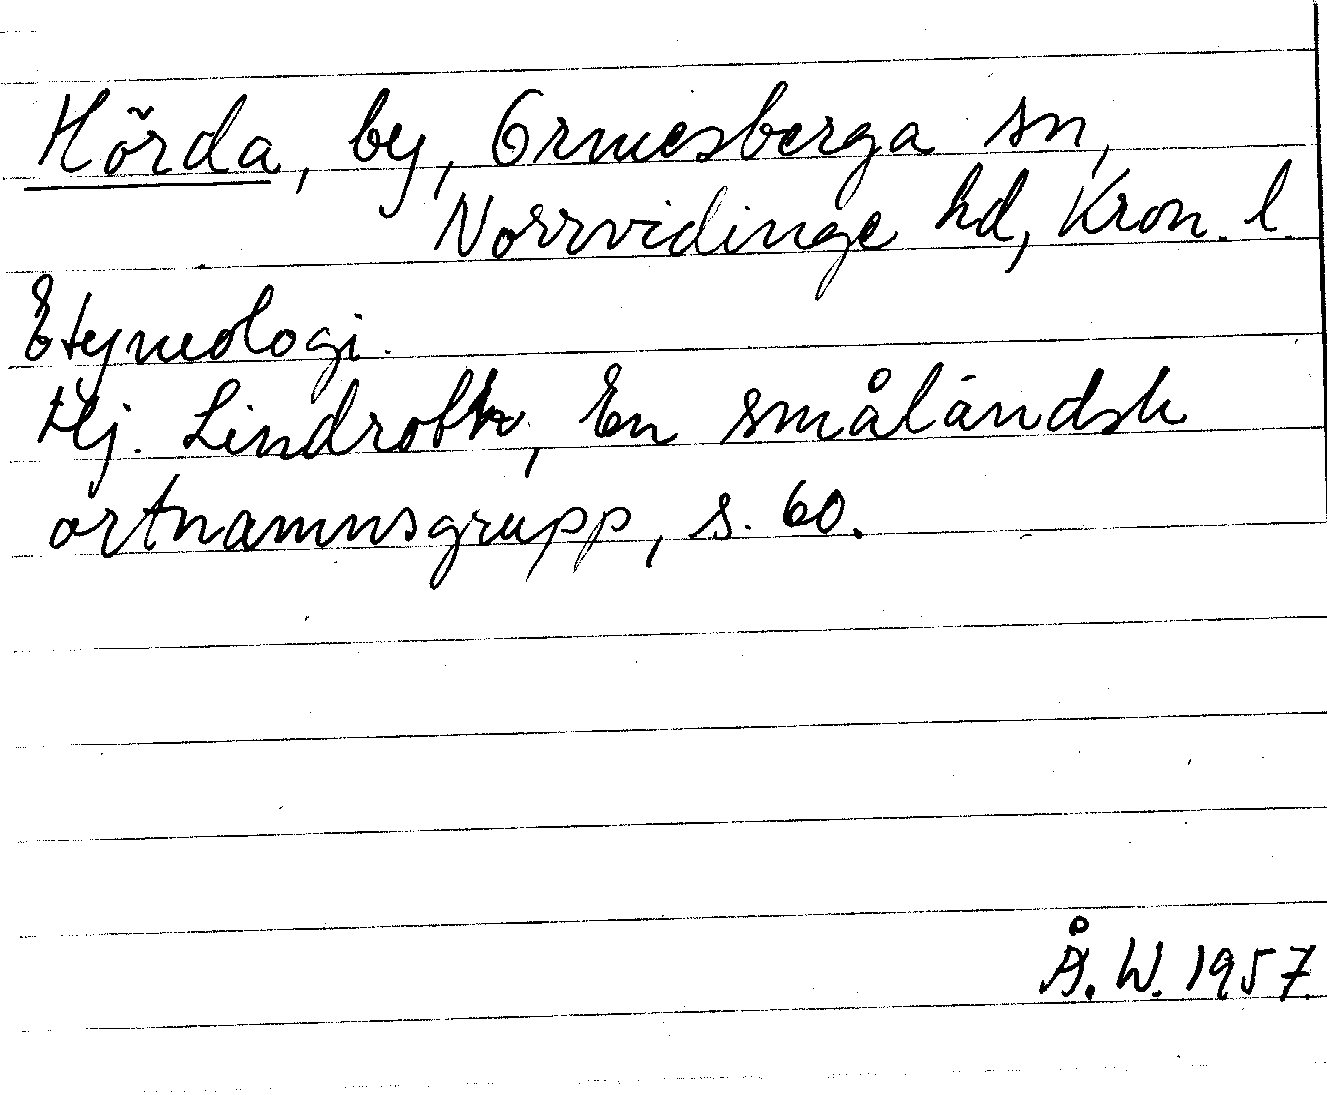 Hörda, by, Ormesberga sn,
Norrvidinge hd, Kron. l.
Etymologi.
Hj. Lindroth, En småländsk
ortnamnsgrupp, s. 60.
Å. W. 1957.